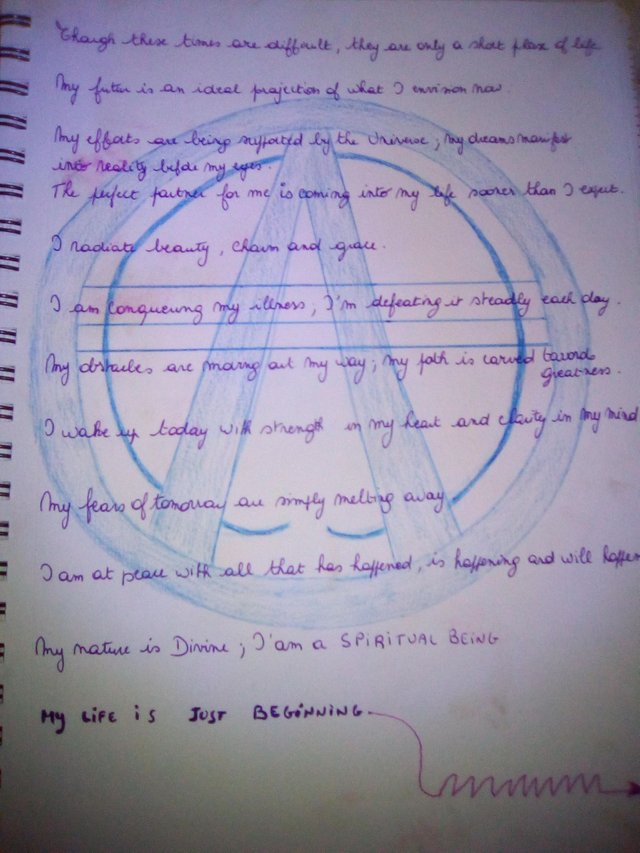 Though these times are difficult, they are only a short phase of life
My future is an ideal projection of what I envision now
My efforts are being supported by the Universe; my dreams manifest
into reality before my eyes.
The perfect partner for me is coming into my life sooner than I expect.
I radiate beauty, charm and grace.
I am conquering my illness; I'm defeating it steadly each day.
My obstacles are moving out my way; my path is carved towards
greatness.
I wake up today with strength in my heart and clarity in my mind
My fears of tomorrow are simply melting away
I am at peace with all that has happened, is happening and will happen
My nature is Divine; I'am a SPIRITUAL BEING
MY LIFE iS JUST BEGINNING